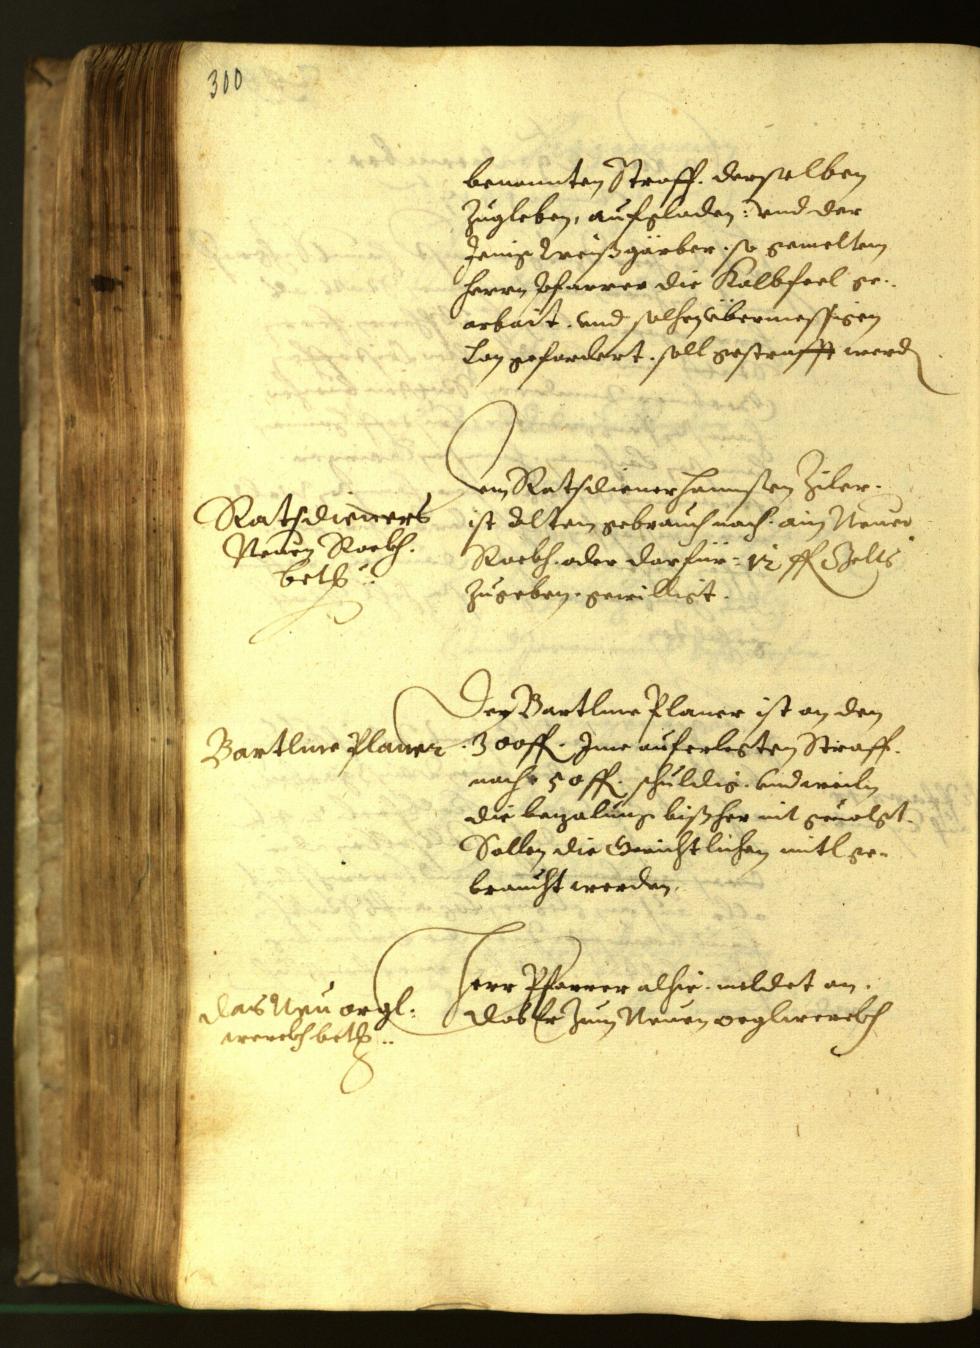 300
benannten Straff. derselben
Zugleben, aufgladen: vnd der
Jenig Weißgärber. so gemeltem
Herrn Pfarrer die Kalbfeel ge-
arbait. vnd solhen übermessigen
Lon gefordert. soll gestrafft werdn
Ratsdieners
Neuen Rockh.
betr:
Dem Ratsdiener Hannsen Ziler.
ist altem gebrauch nach. ain Neuer
Rockh. oder darfür: 12 fl Gelts
Zugeben. gewilligt.
Bartlme Planer
Der Bartlme Planer ist an den
300 fl. Jme auferlegten Straff.
noch 50 fl. schuldig. vnd weiln
die bezalung bißher nit geuolgt.
Sollen die Gerichtlichen mitl ge-
braucht werden.
das Neu orgl:
werckh betr:
Herr Pfarrer alhie. meldet an.
das Er Zum Neuen orglwerckh